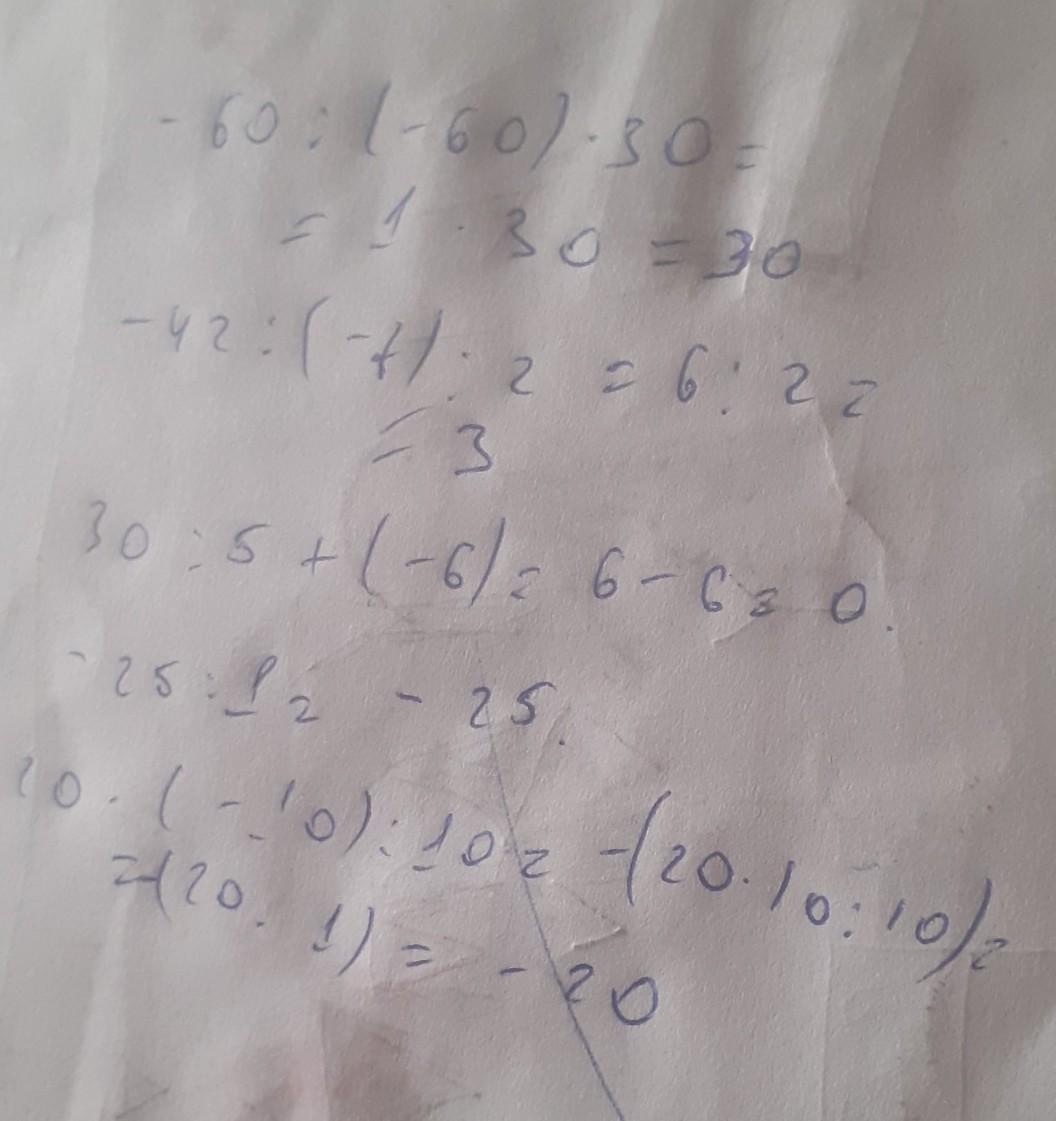 -60 : (-60) · 30 =
= 1 · 30 = 30
-42 : (-7) : 2 = 6 : 2 =
= 3
30 : 5 + (-6) = 6 - 6 = 0.
-25 : 1 = - 25.
20 · (-10) : 10 = -(20 · 10 : 10) =
= -(20 · 1) = - 20